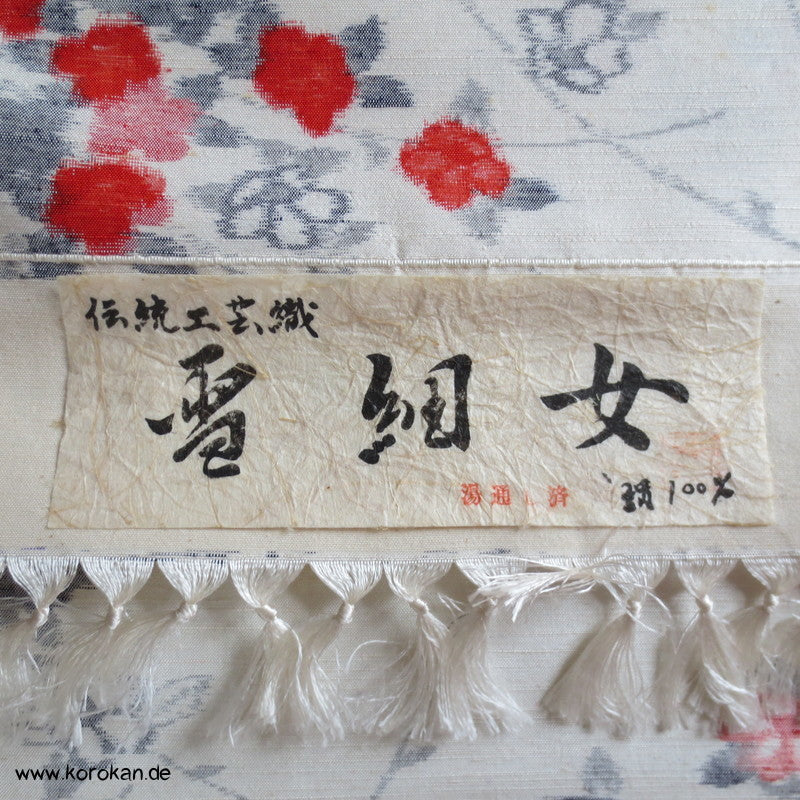 伝統工芸織
雪細女
湯通し済
絹100%
www.korokan.de